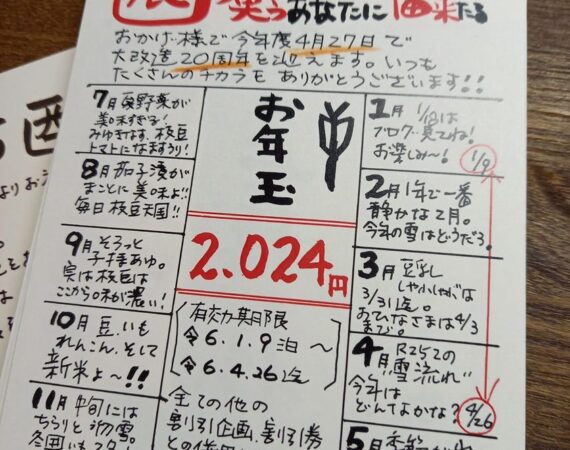 笑う あなたに 福来たる
おかげ様で今年度4月27日で
大改造20周年を迎えます。いつも
たくさんのチカラを ありがとうございます!!
7月 夏野菜が
美味すぎる!
みゆきなす、枝豆
トマトになますうり!
8月 茄子漬が
まことに美味よ!!
毎日 枝豆天国!!
9月 そろっと
子持あゆ。
実は枝豆は
ここから味が濃い!
10月 豆、いも
れんこん、そして
新米よ〜!!
11月 中旬には
ちらりと初雪。
お年玉
2.024円
有効期限
令6.1.9泊〜
令6.4.26迄
全ての他の
割引企画、割引券
1月 1/18は
ブログ見てね!
お楽しみ〜!
1/9
2月 1年で一番
静かな2月。
今年の雪はどうだろ。
3月 豆乳し
ゃぶしゃぶは
3/31迄。
おひなさまは4/3
まで。
4月 R252の
"雪流れ"
今年は
どんでかな?
4/26
5月 季節が